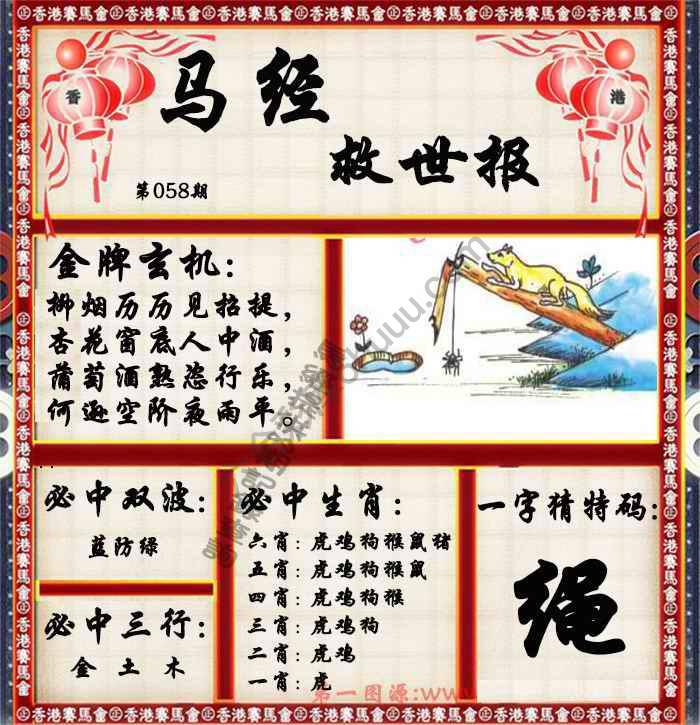 香 港
马经
救世报
第058期
金牌玄机：
柳烟历历见招提，
杏花窗底人中酒，
葡萄酒熟恣行乐，
何逊空阶夜雨平。
必中双波：
蓝防绿
必中三行：
金 土 木
必中生肖：
六肖：虎鸡狗猴鼠猪
五肖：虎鸡狗猴鼠
四肖：虎鸡狗猴
三肖：虎鸡狗
二肖：虎鸡
一肖：虎
一字猜特码：
绳
第一图源:www
香港賽馬會